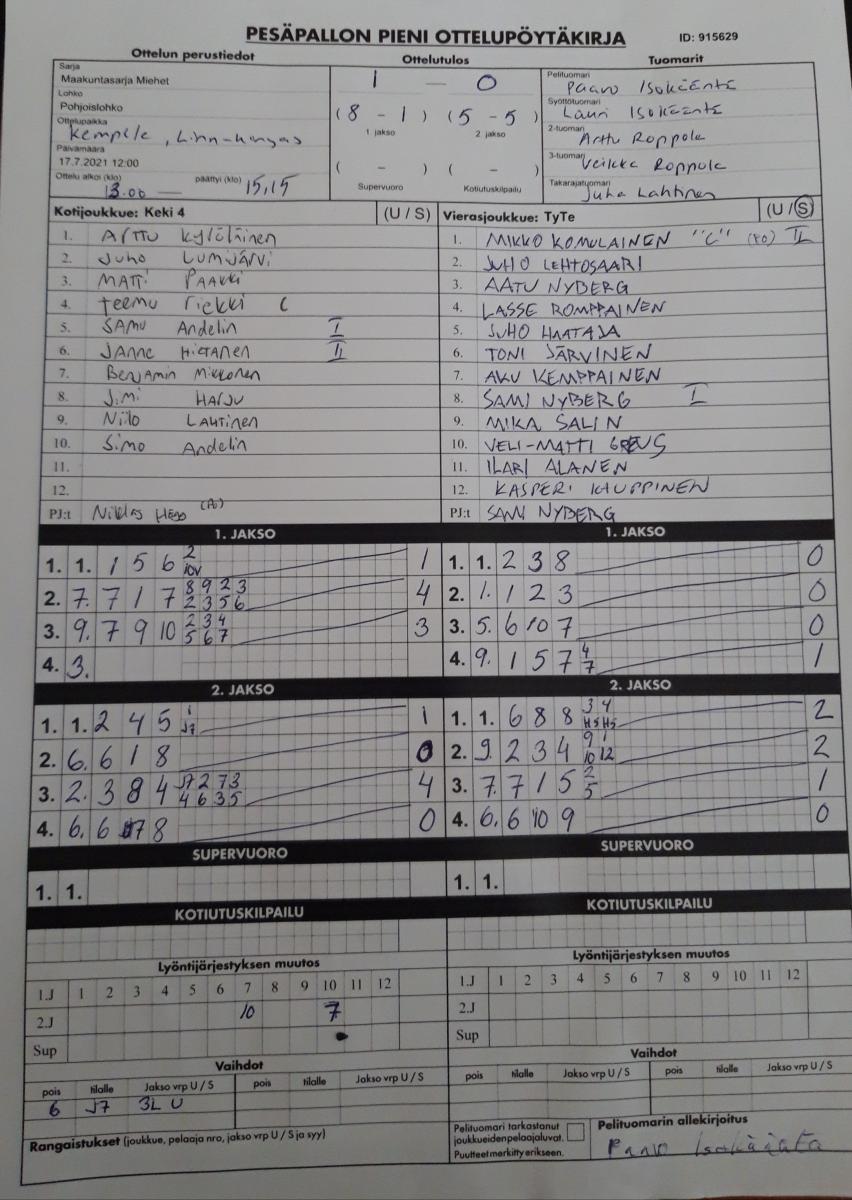 PESÄPALLON PIENI OTTELUPÖYTÄKIRJA ID: 915629
Ottelun perustiedot Ottelutulos Tuomarit
Sarja
Maakuntasarja Miehet
Lohko
Pohjoislohko
Ottelupaikka
Kempele,
Päivämäärä
17.7.2021 12:00
Ottelu alkoi (klo) 13.00 päättyi (klo) 15,15
1 — 0
(8 - 1) (5 - 5)
1 jakso 2. jakso
( - ) ( - )
Supervuoro Kotiutuskilpailu
Pelituomari Paavo
Syöttötuomari Lauri
2-tuomari Arttu Roppola
3-tuomari Veikka Roppola
Takarajatuomari Juha Lahtinen
Kotijoukkue: Keki 4 (U / S)
1. Arttu Kylöläinen
2. Juho Lumijärvi
3. MATTi PAAKKi
4. teemu riekki C
5. SAMU Andelin I
6. JANNE HIETANEN II
7. Benjamin Mikkonen
8. Jimi HARJU
9. Niilo LAUTINEN
10. Simo Andelin
11.
12.
PJ:t Niklas
Vierasjoukkue: TyTe (U / S)
1. MIKKO KOMULAINEN "C" (PO) II
2. JUHO LEHTOSAARI
3. AATU NYBERG
4. LASSE ROMPPAINEN
5. JUHO HAATAJA
6. TONI JÄRVINEN
7. AKU KEMPPAINEN
8. SAMI NYBERG I
9. MIKA SALIN
10. VELI-MATTI GREUS
11. ILARI ALANEN
12. KASPERI KAUPPINEN
PJ:t SAMI NYBERG
1. JAKSO
1. 1. 1 5 6 2 1
2. 7. 7 1 7 8 9 2 3 2 3 5 6 4
3. 9. 7 9 10 2 3 4 5 6 7 3
4. 3.
1. JAKSO
1. 1. 2 3 8 0
2. 1. 1 2 3 0
3. 5. 6 10 7 0
4. 9. 1 5 7 4 7 1
2. JAKSO
1. 1. 2 4 5 1 J7 1
2. 6. 6 1 8 0
3. 2. 3 8 4 J7 2 7 3 4 6 3 5 4
4. 6. 6 7 8 0
2. JAKSO
1. 1. 6 8 8 3 4 2
2. 9. 2 3 4 9 1 10 12 2
3. 7. 7 1 5 2 5 1
4. 6. 6 10 9 0
SUPERVUORO
1. 1.
SUPERVUORO
1. 1.
KOTIUTUSKILPAILU
KOTIUTUSKILPAILU
Lyöntijärjestyksen muutos
1.J 1 2 3 4 5 6 7 8 9 10 11 12
2.J 10 7
Sup
Lyöntijärjestyksen muutos
1.J 1 2 3 4 5 6 7 8 9 10 11 12
2.J
Sup
Vaihdot
pois tilalle Jakso vrp U / S pois tilalle Jakso vrp U / S
6 J7 3L U
Vaihdot
pois tilalle Jakso vrp U / S pois tilalle Jakso vrp U / S
Rangaistukset (joukkue, pelaaja nro, jakso vrp U / S ja syy)
Pelituomari tarkastanut
joukkueiden pelaajaluvat.
Puutteet merkitty erikseen.
Pelituomarin allekirjoitus
Paavo